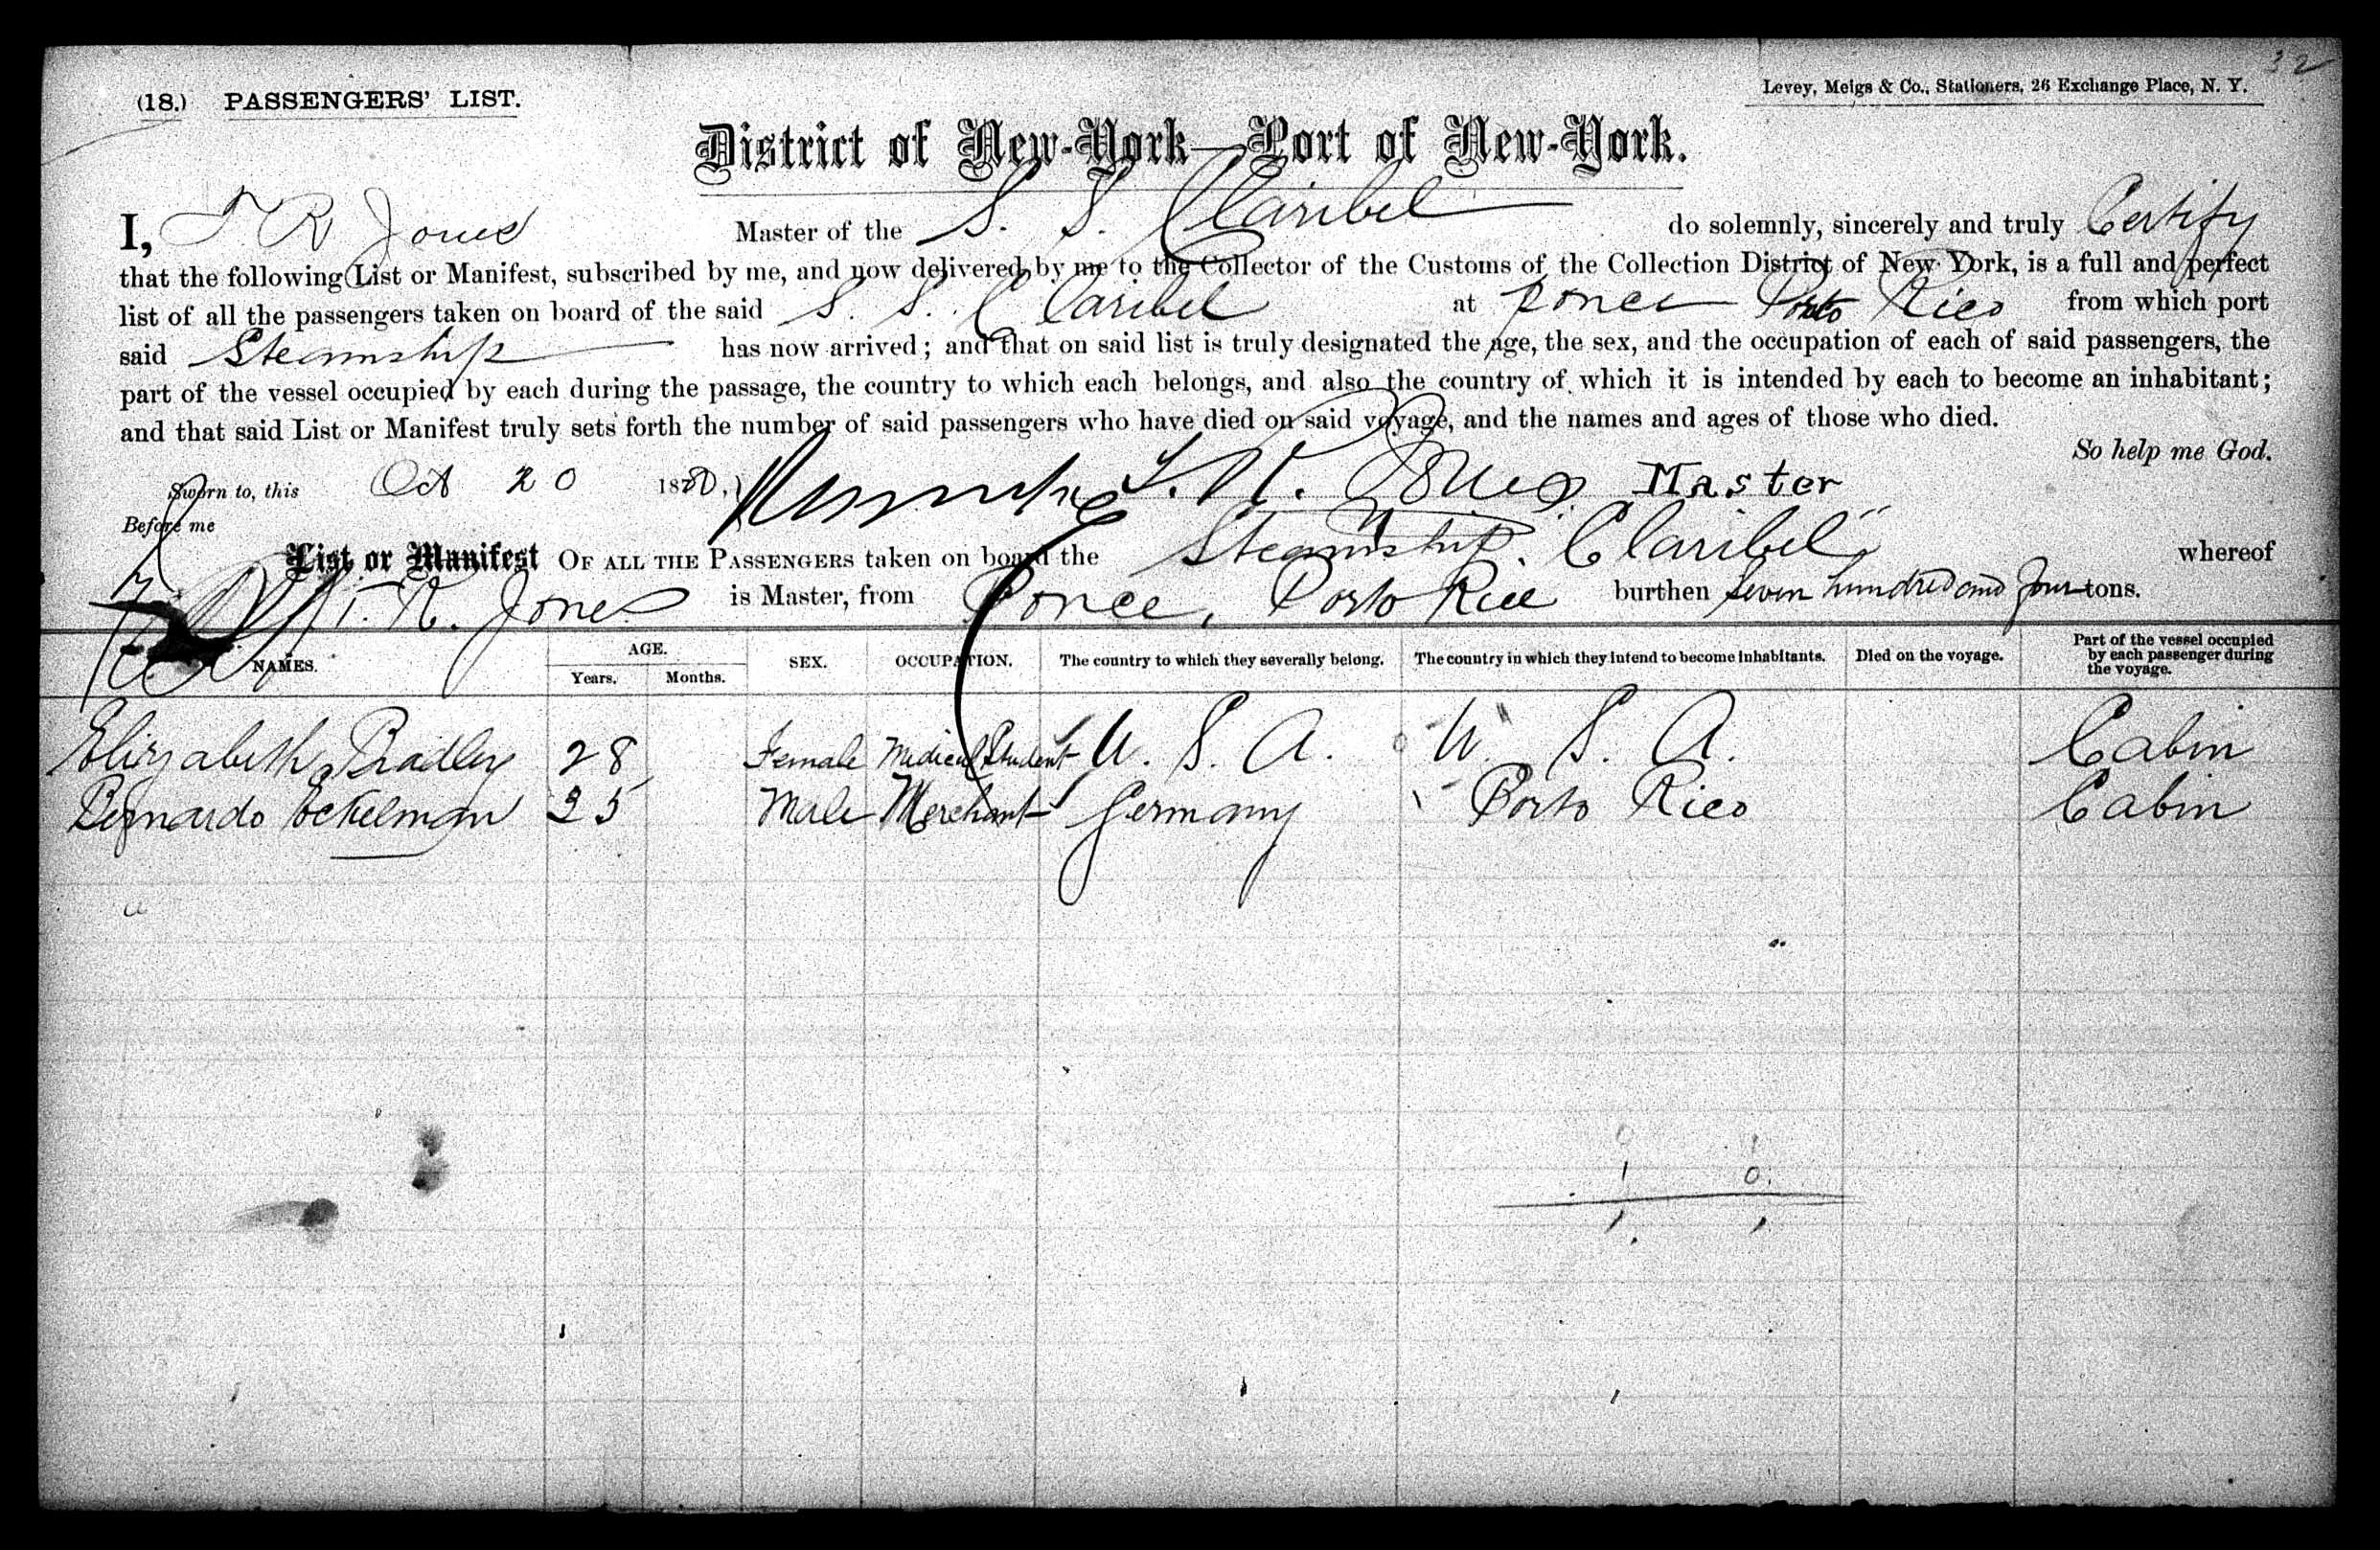 32
(18.) PASSENGERS' LIST.
Levey, Meigs & Co., Stationers, 26 Exchange Place, N. Y.
District of New-York—Port of New-York.
I, T R Jones Master of the S. S. Claribel do solemnly, sincerely and truly Certify
that the following List or Manifest, subscribed by me, and now delivered by me to the Collector of the Customs of the Collection District of New York, is a full and perfect
list of all the passengers taken on board of the said S. S. Claribel at Ponce Porto Rico from which port
said Steamship has now arrived; and that on said list is truly designated the age, the sex, and the occupation of each of said passengers, the
part of the vessel occupied by each during the passage, the country to which each belongs, and also the country of which it is intended by each to become an inhabitant;
and that said List or Manifest truly sets forth the number of said passengers who have died on said voyage, and the names and ages of those who died.
So help me God.
Sworn to, this Oct 20 1880, T. R. Jones Master
Before me
List or Manifest OF ALL THE PASSENGERS taken on board the Steamship "Claribel" whereof
T. R. Jones is Master, from Ponce, Porto Rico burthen Seven hundred and four tons.
NAMES. AGE. Years. Months. SEX. OCCUPATION. The country to which they severally belong. The country in which they intend to become inhabitants. Died on the voyage. Part of the vessel occupied by each passenger during the voyage.
Elizabeth Bradley 28 Female Medical Student U. S. A. U. S. A. Cabin
Bernardo Eckelman 35 Male Merchant Germany Porto Rico Cabin
1 0
1 1